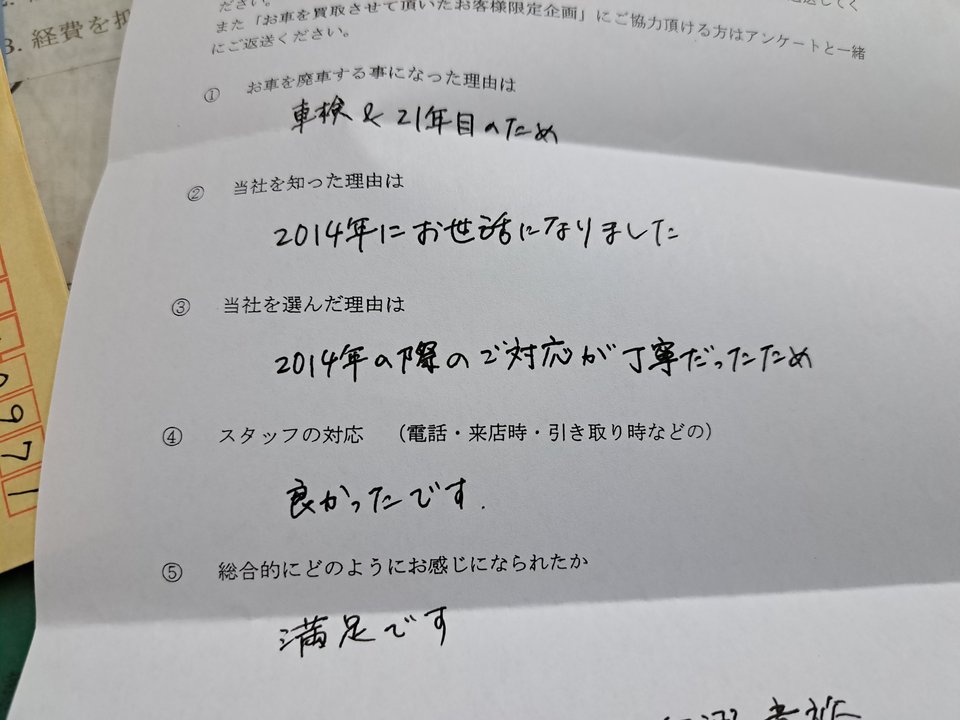 ださい。
また「お車を買取させて頂いたお客様限定企画」にご協力頂ける方はアンケートと一緒
にご返送ください。
3. 経費を
① お車を廃車する事になった理由は
車検 & 21年目のため
② 当社を知った理由は
2014年にお世話になりました
③ 当社を選んだ理由は
2014年の際のご対応が丁寧だったため
④ スタッフの対応 （電話・来店時・引き取り時などの）
良かったです.
⑤ 総合的にどのようにお感じになられたか
満足です
971